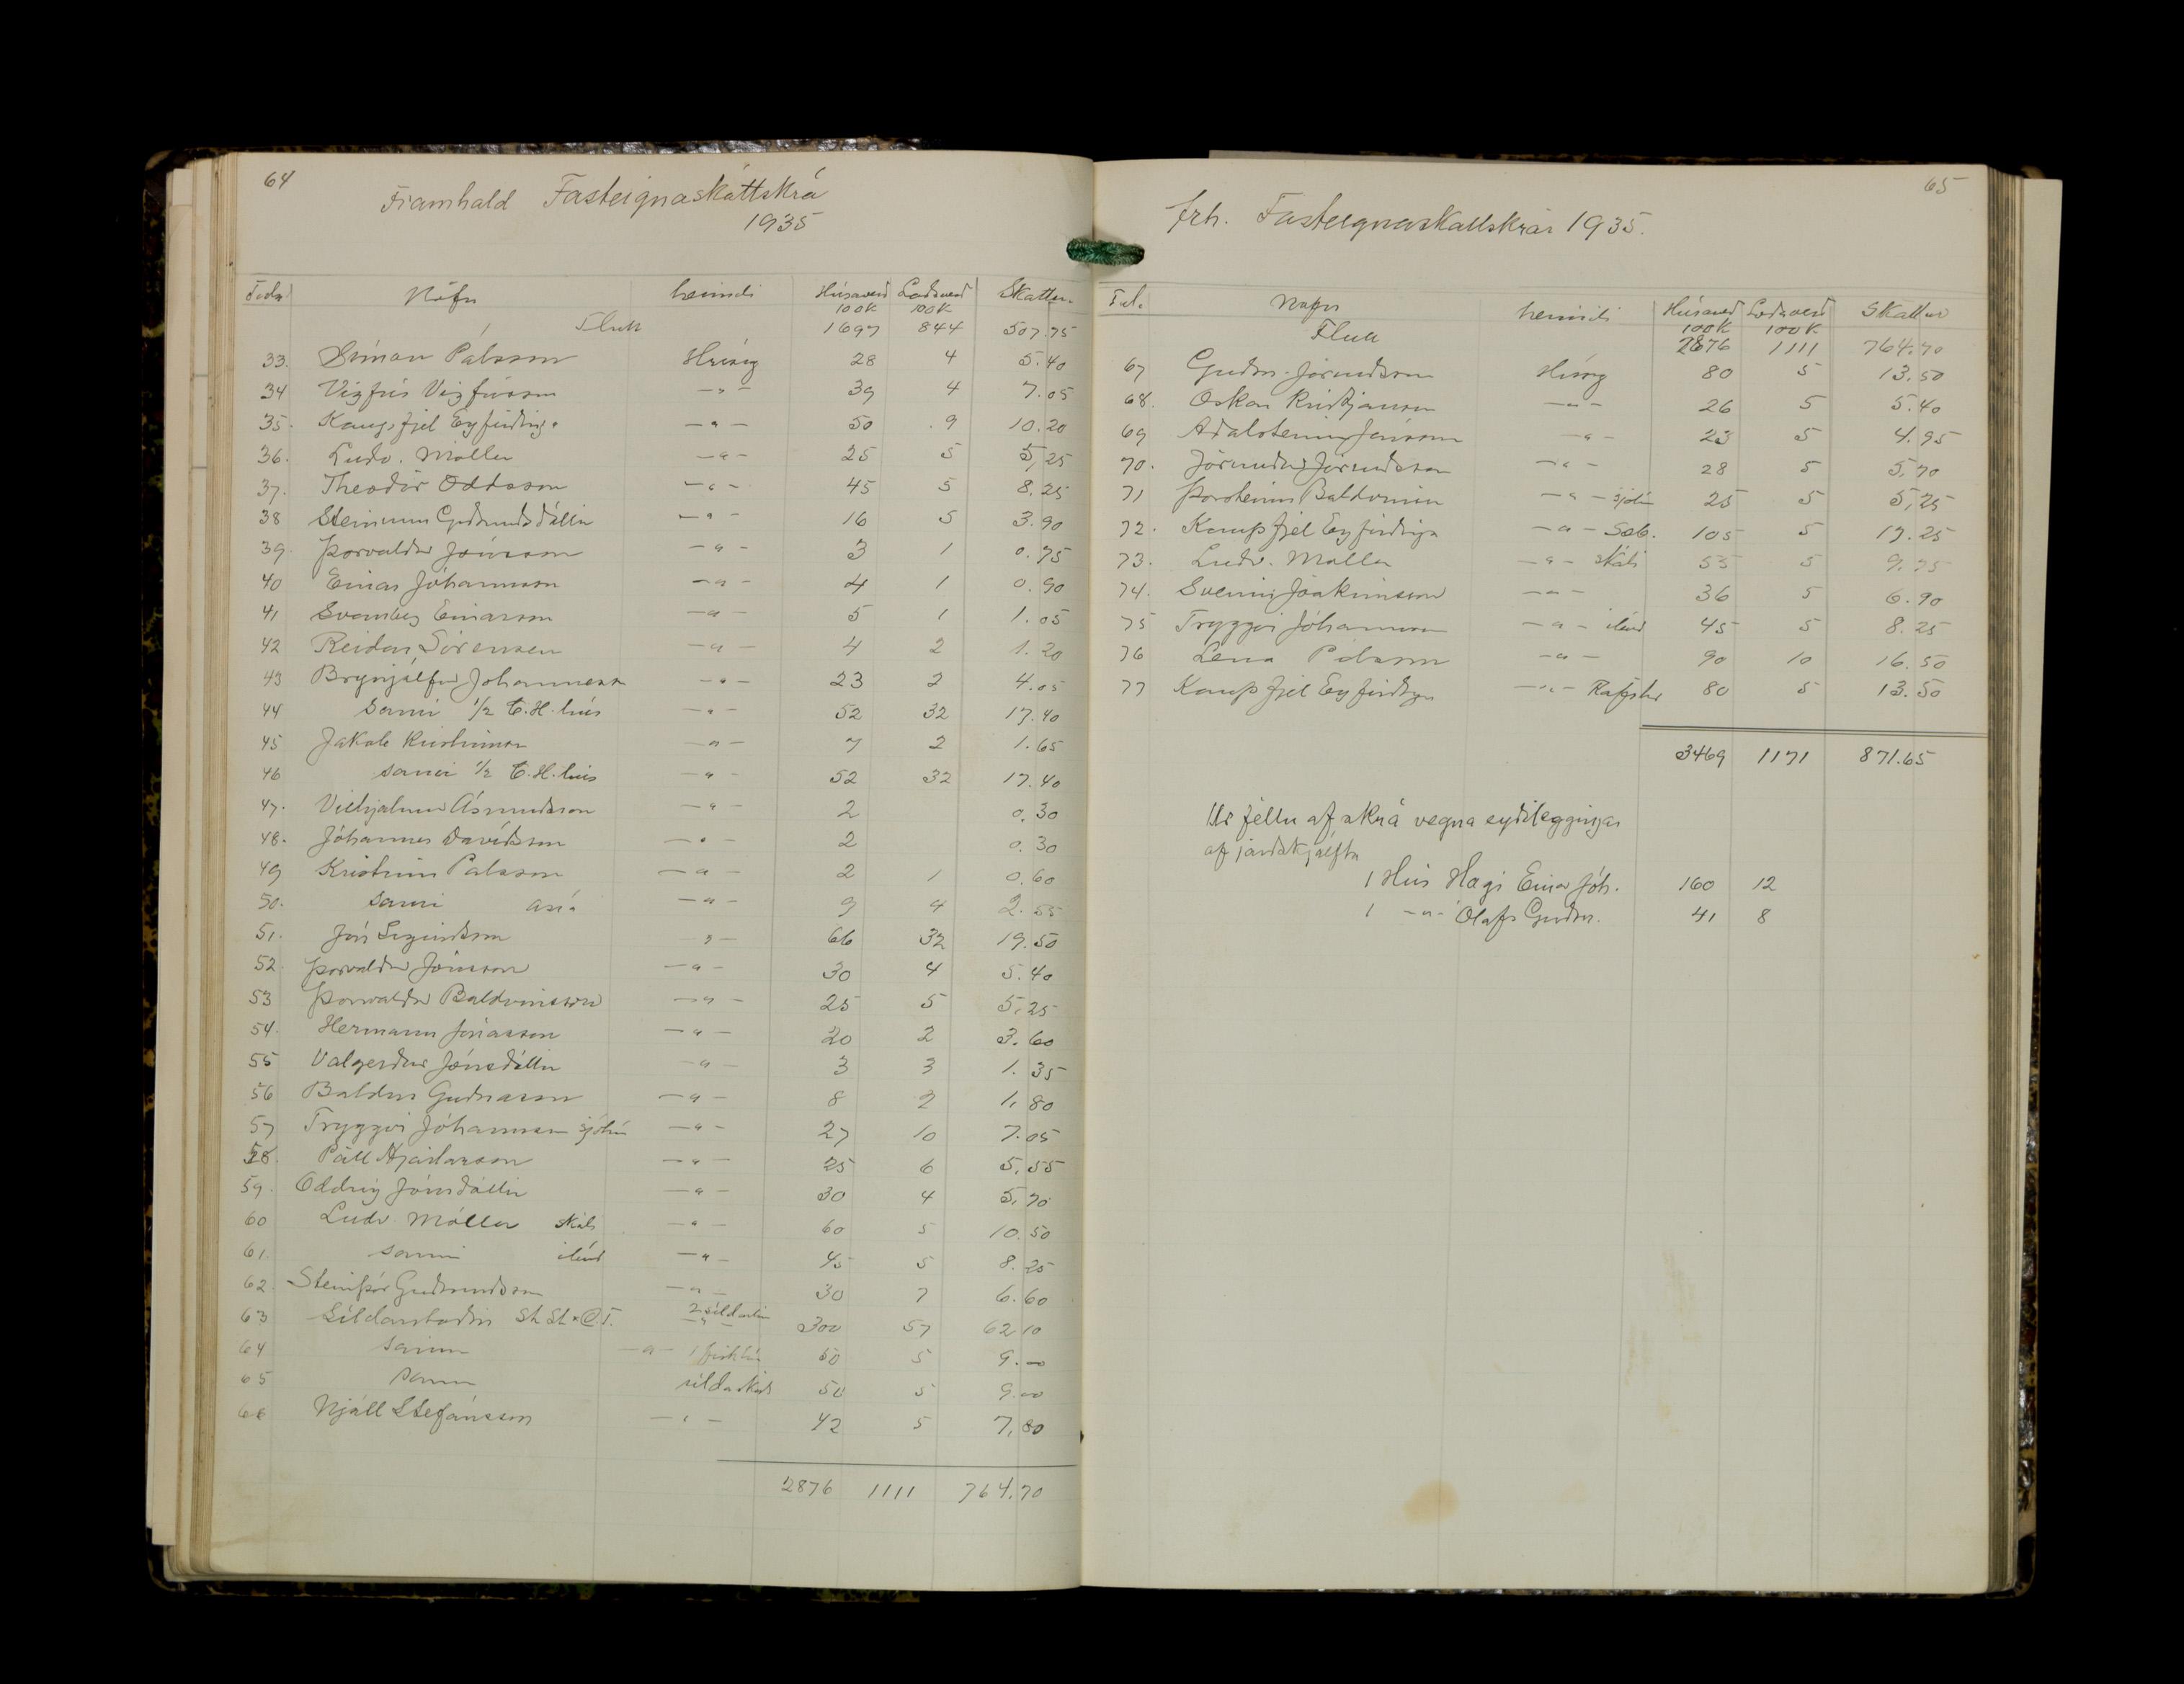 64
Framhald Fasteignaskattskrá
1935
Nöfn heimili Húsaverð Lóðaverð Skattur
100K 100K
Flutt 1697 844 507.75
33. Símon Pálsson Hrísey 28 4 5.40
34 Vigfús Vigfússon —"— 39 4 7.05
35. Kaupfjel Eyfirðinga —"— 50 9 10.20
36. Ludv. Möller —"— 25 5 5,25
37. Theodór Oddsson —"— 45 5 8.25
38 Steinunn Guðmundsdóttir —"— 16 5 3.90
39. Þorvaldur Jónsson —"— 3 1 0.75
40 Einar Jóhannsson —"— 4 1 0.90
41 Svanberg Einarsson —"— 5 1 1.05
42 Reidar Sörensen —"— 4 2 1.20
43 Brynjólfur Jóhannesson —"— 23 2 4.05
44 Sami 1/2 C.H. hús —"— 52 32 17.40
45 Jakob Kristinsson —"— 7 2 1.65
46 sami 1/2 C.H. hús —"— 52 32 17.40
47. Vilhjalmur Ásmundsson —"— 2 0,30
48. Jóhannes Davíðsson —"— 2 0.30
49 Kristinn Pálsson —"— 2 1 0.60
50. Sami —"— 9 4 2.55
51. Jón Sigurðsson —"— 66 32 19.50
52. Þorvaldur Jónsson —"— 30 4 5.40
53 Þorvaldur Baldvinsson —"— 25 5 5,25
54. Hermann Jónasson —"— 20 2 3.60
55 Valgerður Jónsdóttir —"— 3 3 1.35
56 Baldur Guðnason —"— 8 2 1,80
57 Tryggvi Jóhannsson sjóhús —"— 27 10 7.05
58. Páll Hjartarson —"— 25 6 5,55
59. Oddný Jónsdóttir —"— 30 4 5,70
60 Ludv. Möller —"— 60 5 10.50
61. sami íbúð —"— 45 5 8.25
62. Steinþór Guðmundsson —"— 30 7 6.60
63 Síldarstöðin —"— 300 57 62 10
64 Sami —"— 1 50 5 9.—
65 Sami 50 5 9.00
66 Njáll Stefánsson —"— 42 5 7,80
2876 1111 764.70
65
frh. Fasteignaskattskrár 1935.
Nafn heimili Húsaverð Lóðaverð Skattur
100K 100K.
Flutt 2876 1111 764.70
67 Guðm. Jörundsson Hrísey 80 5 13.50
68. Oskar Kristjánsson —"— 26 5 5.40
69 Aðalsteinn Jónsson —"— 23 5 4.95
70. Jörundur Jörundsson —"— 28 5 5,70
71 Þorsteinn Baldvinsson —"— sjóhús 25 5 5,25
72. Kaupfjel Eyfirðinga —"— Sæb. 105 5 17.25
73. Ludv. Möller —"— 55 5 9.75
74. Sveinn Jóakimsson —"— 36 5 6.90
75 Tryggvi Jóhannsson —"— íbúð 45 5 8.25
76 Pálsson —"— 90 10 16.50
77 Kaupfjel Eyfirðinga —"— 80 5 13.50
3469 1171 871.65
Úr féllu af skrá vegna eyðileggingar
af jarðskjálfta
1 Hús Hagi Einar Jóh. 160 12
1 —"— Olafs Guðm. 41 8